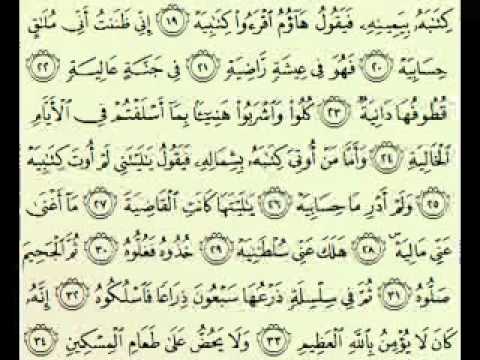 كِتَٰبَهُۥ بِيَمِينِهِۦ فَيَقُولُ هَآؤُمُ ٱقْرَءُوا۟ كِتَٰبِيَهْ ١٩ إِنِّى ظَنَنتُ أَنِّى مُلَٰقٍ
حِسَابِيَهْ ٢٠ فَهُوَ فِى عِيشَةٍ رَّاضِيَةٍ ٢١ فِى جَنَّةٍ عَالِيَةٍ ٢٢
قُطُوفُهَا دَانِيَةٌ ٢٣ كُلُوا۟ وَٱشْرَبُوا۟ هَنِيٓـًٔۢا بِمَآ أَسْلَفْتُمْ فِى ٱلْأَيَّامِ
ٱلْخَالِيَةِ ٢٤ وَأَمَّا مَنْ أُوتِىَ كِتَٰبَهُۥ بِشِمَالِهِۦ فَيَقُولُ يَٰلَيْتَنِى لَمْ أُوتَ كِتَٰبِيَهْ
٢٥ وَلَمْ أَدْرِ مَا حِسَابِيَهْ ٢٦ يَٰلَيْتَهَا كَانَتِ ٱلْقَاضِيَةَ ٢٧ مَآ أَغْنَىٰ
عَنِّى مَالِيَهْ ۜ ٢٨ هَلَكَ عَنِّى سُلْطَٰنِيَهْ ٢٩ خُذُوهُ فَغُلُّوهُ ٣٠ ثُمَّ ٱلْجَحِيمَ
صَلُّوهُ ٣١ ثُمَّ فِى سِلْسِلَةٍ ذَرْعُهَا سَبْعُونَ ذِرَاعًا فَٱسْلُكُوهُ ٣٢ إِنَّهُۥ
كَانَ لَا يُؤْمِنُ بِٱللَّهِ ٱلْعَظِيمِ ٣٣ وَلَا يَحُضُّ عَلَىٰ طَعَامِ ٱلْمِسْكِينِ ٣٤